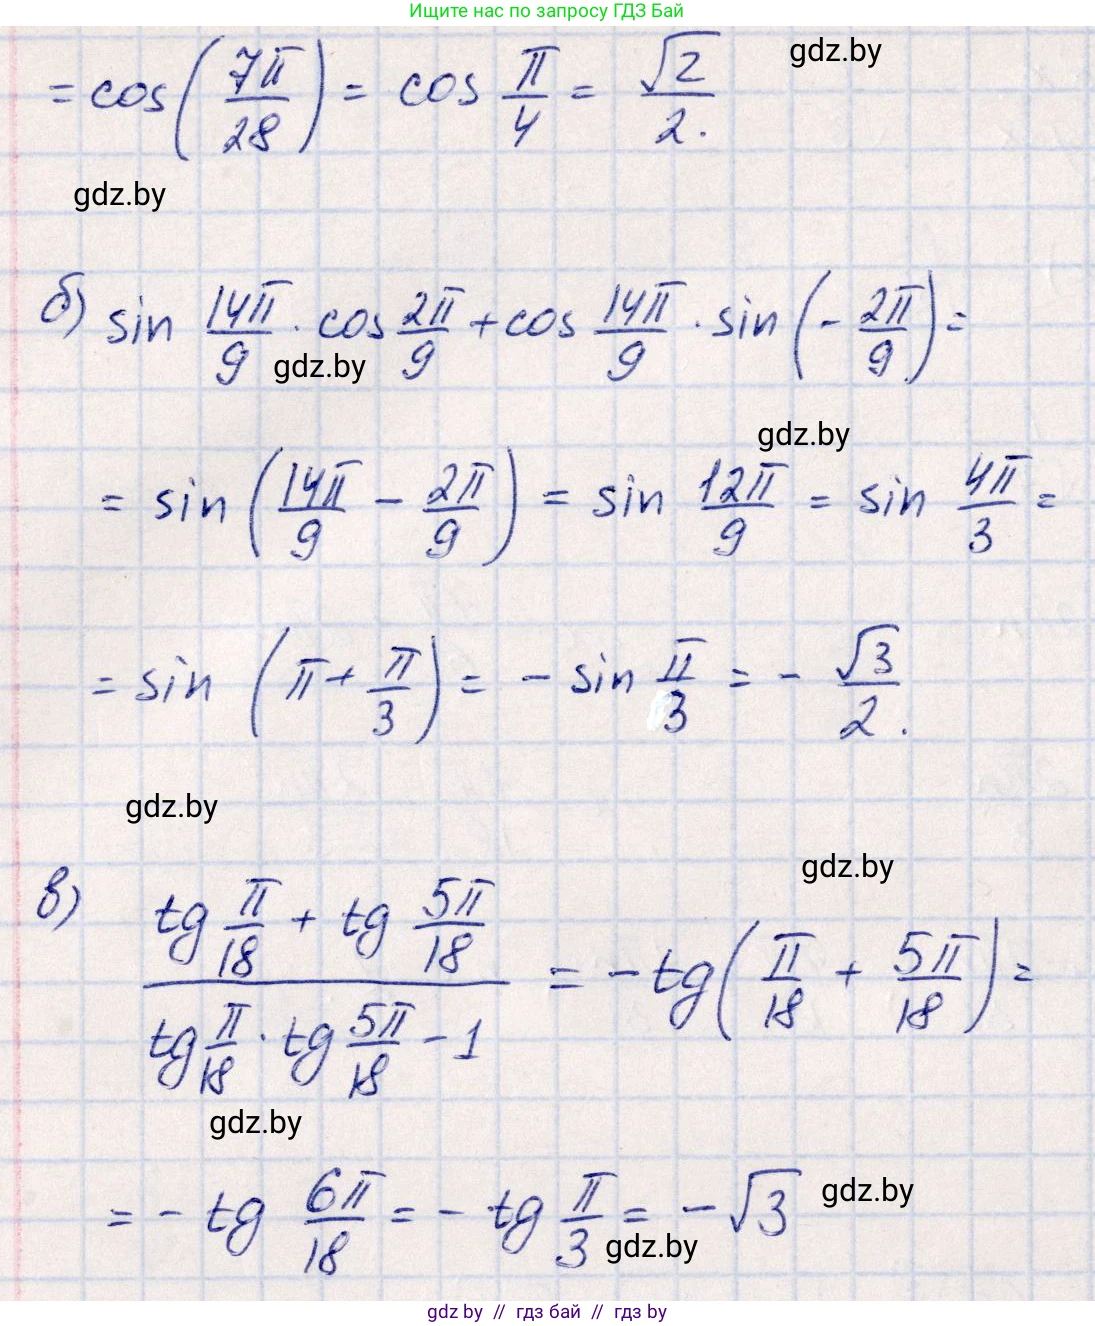 Ищите нас по запросу ГДЗ Бай
= cos(7π/28) = cos π/4 = √2/2.
gdz.by
gdz.by
б) sin 14π/9 · cos 2π/9 + cos 14π/9 · sin (- 2π/9) =
gdz.by
gdz.by
= sin (14π/9 - 2π/9) = sin 12π/9 = sin 4π/3 =
= sin (π + π/3) = - sin π/3 = - √3/2.
gdz.by
gdz.by
в) (tg π/18 + tg 5π/18)/(tg π/18 · tg 5π/18 - 1) = - tg(π/18 + 5π/18) =
gdz.by
= - tg 6π/18 = - tg π/3 = - √3
gdz.by
gdz.by
gdz by // гдз бай // гдз by